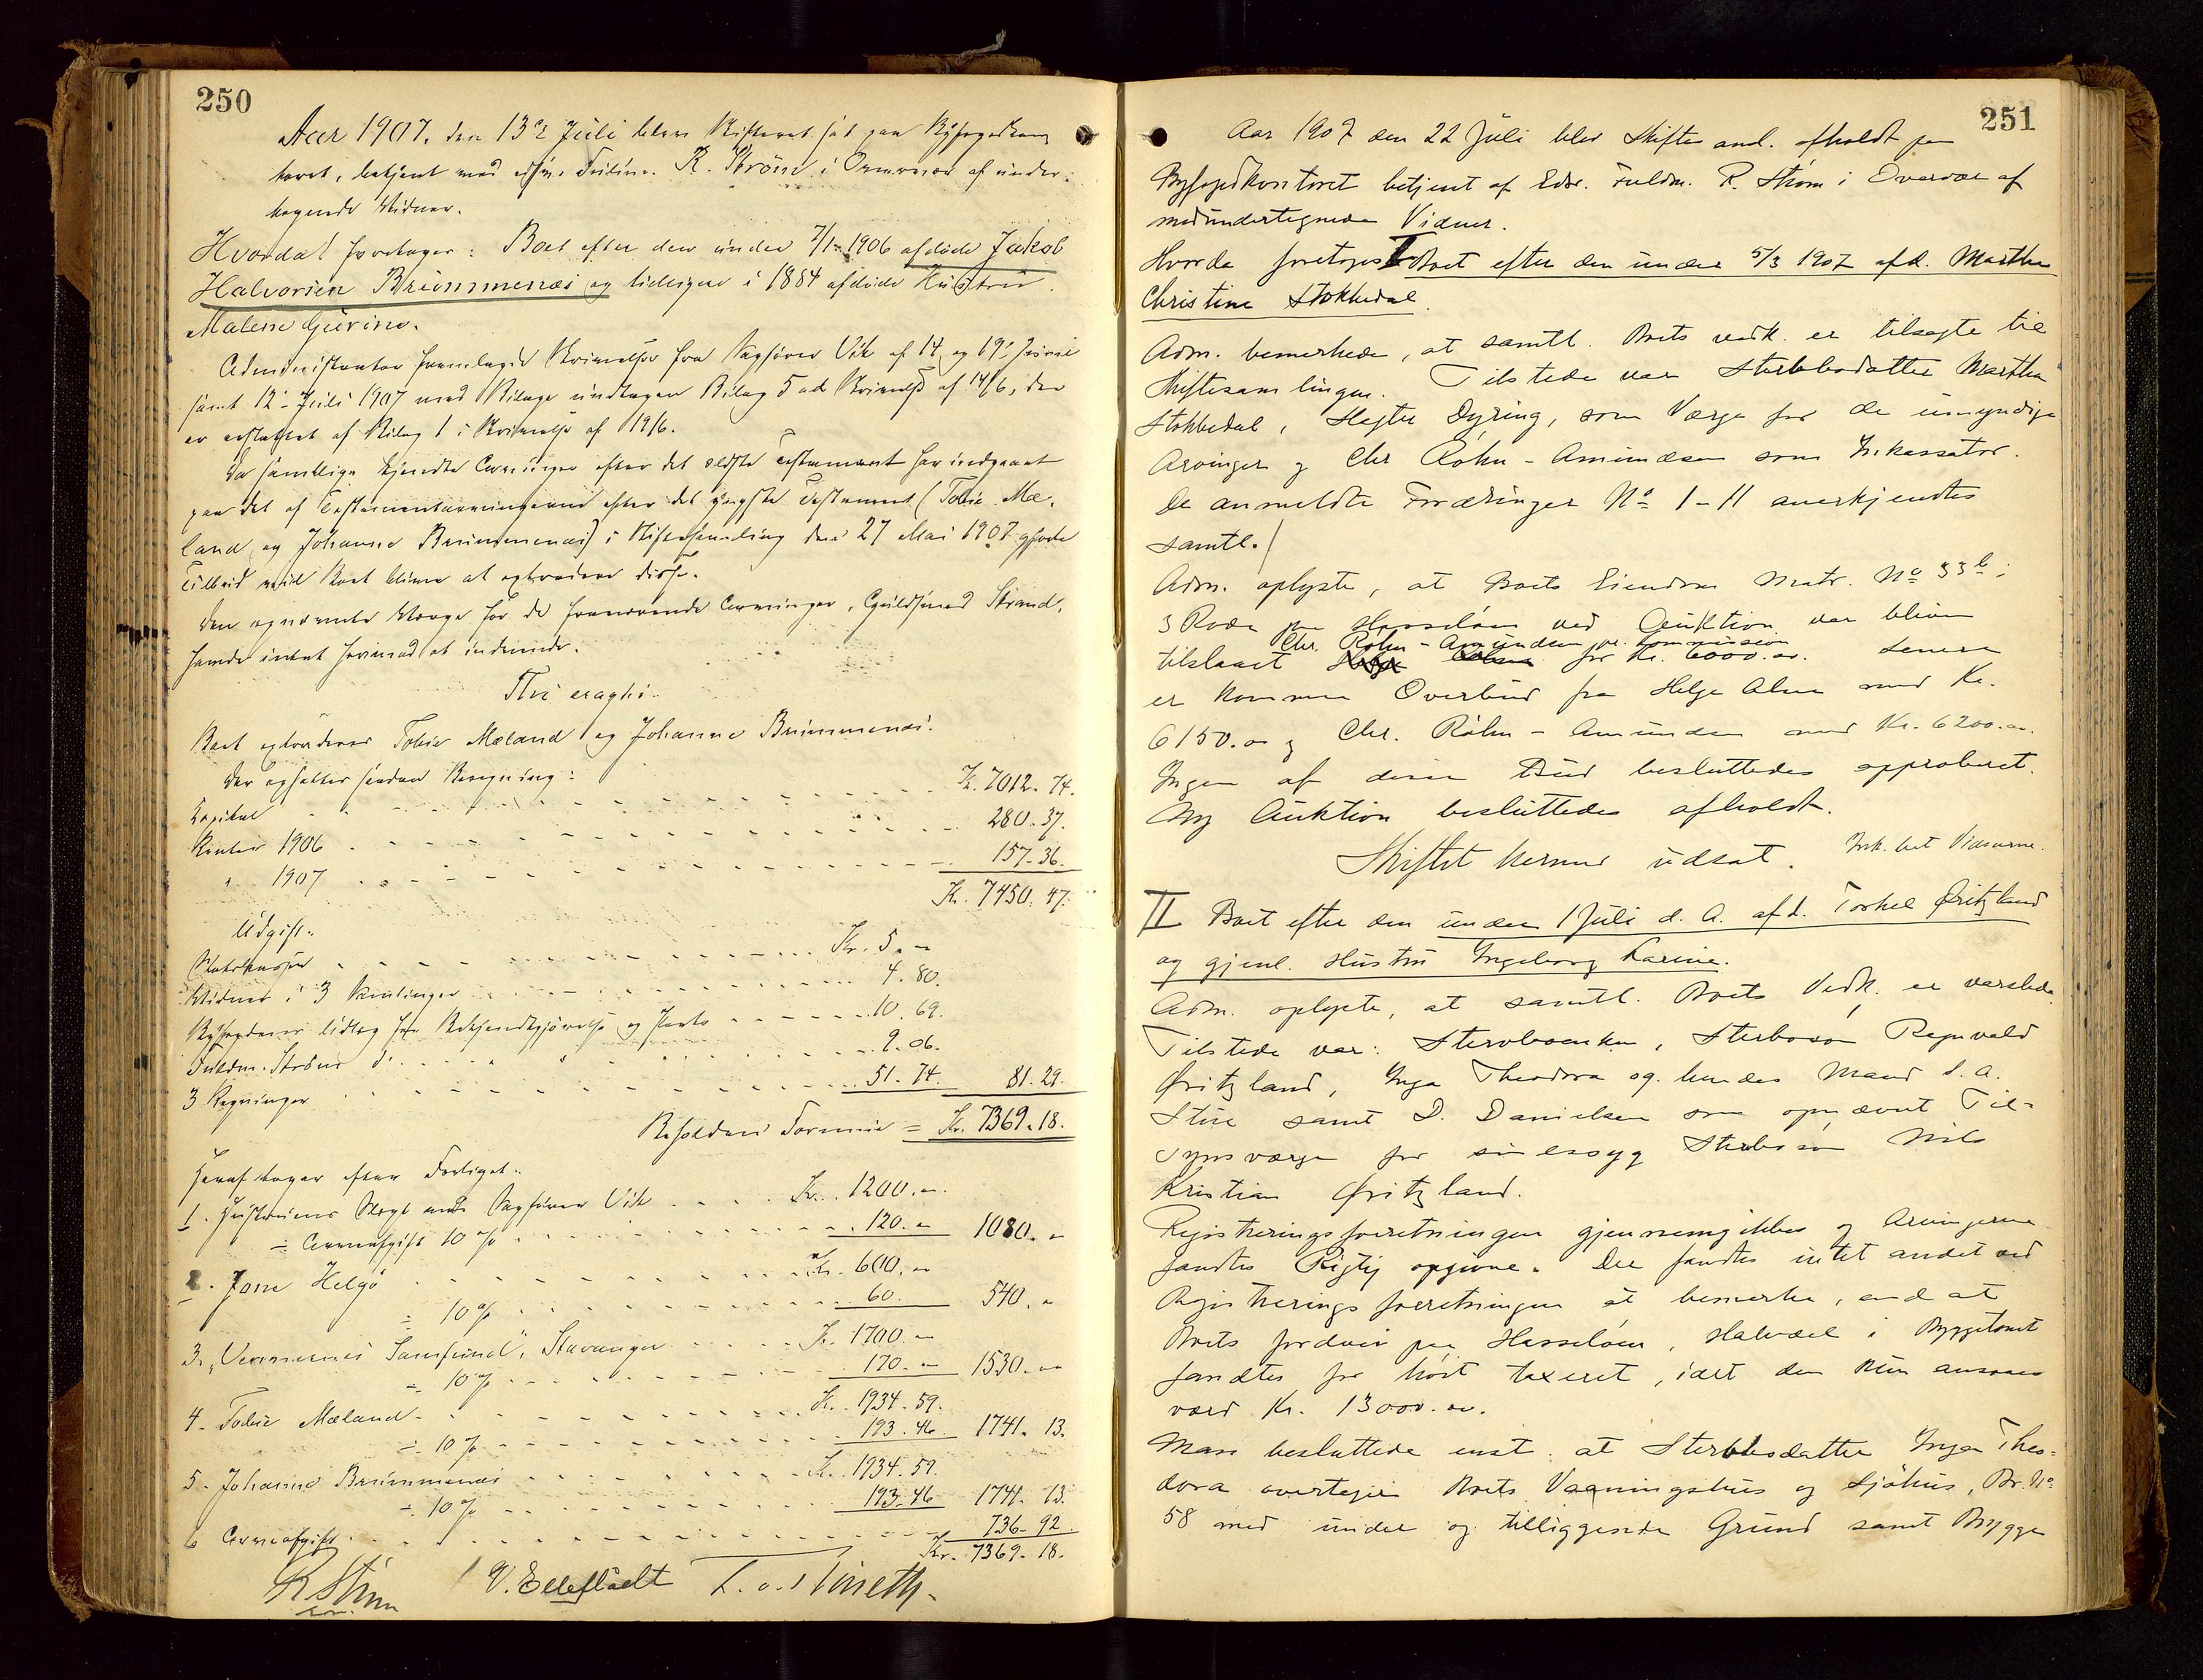 250
Aar 1907, den 13de Juli blev Skifteret sat paa Byfogedkon-
toret, betjent med edsv. Fuldm. R. Strøm i Overvær af under-
tegnede Vidner.
Hvorda! foretoges: Boet efter den under 7/1 1906 afdøde Jakob
Halvorsen Brummenæs og tidligere i 1884 afdøde Hustru
Malene Gurine.
Administrator fremlagde Skrivelser fra Sagfører Vik af 14 og 19 Juni
samt 12 Juli 1907 med Bilage undtagen Bilag 5 ad Skrivelse af 14/6, der
er erstattet af Bilag 1 i Skrivelse af 19/6.
Da samtlige kjendte Arvinger efter det ældste Testament har indgaaet
paa det af Testamentarvingerne efter det yngste Testament (Tobie Mæ-
land og Johanne Brummenæs) i Skiftesamling den 27 Mai 1907 gjorde
Tilbud vil Boet blive at extradere disse.
Den opnævnte Værge for de fraværende Arvinger, Guldsmed Strand,
havde intet herimod at indvende.
Thi eragtes:
Boet extraderes Tobie Mæland og Johanne Brummenæs.
Der opsattes saadan Beregning:
Kapital Kr. 7012. 74.
Renter 1906 280. 37.
" 1907 157. 36.
Kr. 7450. 47.
Udgift:
Statskassen Kr. 5. "
Vidner i 3 Samlinger 4. 80.
Byfogdens Udlæg for Bekjendtgjørelse og Porto 10. 69.
Fuldm. Strøms do. 9. 06.
3 Regninger 51. 74. 81. 29.
Beholden Formue = Kr. 7369. 18.
Heraf tager efter Forliget:
1. Hustruens Slegt ved Sagfører Vik Kr. 1200. "
÷ Arveafgift 10 % 120. " 1080. "
2. Jane Helgø Kr. 600. "
÷ 10 % 60. 540. "
3. "Vennernes Samfund", Stavanger Kr. 1700. "
÷ 10 % 170. " 1530. "
4. Tobie Mæland Kr. 1934. 59.
÷ 10 % 193. 46. 1741. 13.
5. Johanne Brummenæs Kr. 1934. 59.
÷ 10 % 193. 46 1741. 13.
6 Arveafgift 736. 92
Kr. 7369. 18.
R Strøm V. Ellefladt
251
Aar 1907 den 22 Juli blev Skiftesaml. afholdt paa
Byfogedkontoret betjent af Edsv. Fuldm. R. Strøm i Overvær af
medundertegnede Vidner.
Hvorda foretoges I Boet efter den under 5/3 1907 afd. Marthe
Christine Stokkedal.
Adm. bemerkede, at samtl. Boets vedk. er tilsagte til
Skiftesamlingen. Tilstede var Sterbbodatter Martha
Stokkedal, Slagter Dyring, som Værge for de umyndige
Arvinger og Chr Røhn-Amundsen som Inkassator.
De anmeldte Fordringer No 1-11 anerkjendtes
samtl.
Adm. oplyste, at Boets Eiendom Matr. No 33b i
3 Rode paa Hasseløen ved Auktion var bleven
Chr. Røhn-Amundsen pr. Commission
tilslaaet for Kr. 6000.00. Senere
er kommen Overbud fra Helge Alne med Kr.
6150.00 og Chr. Røhn-Amundsen med Kr. 6200.00.
Ingen af disse Bud besluttedes approberet.
Ny Auktion besluttedes afholdt.
Skiftet hermed udsat. Ink. bet Vidnerne.
II Boet efter den under 1 Juli d. A. afd. Torkel Øritzland
og gjenl. Hustru Ingeborg Karine.
Adm. oplyste, at samtl. Boets Vedk. er varslede
Tilstede var: Sterbboenken, Sterbosøn Regnvald
Øritzland, Inga Theodora og hendes Mand S. A.
Stue samt D. Danielsen som opnævnt Til-
synsværge for sindssyg Sterbosøn Nils
Kristian Øritzland.
Registreringsforretningen gjennemgikkes og Arvingerne
fandtes Rigtig opgivne. Der fandtes intet andet ved
Registreringsforretningen at bemerke, end at
Boets Jordvei paa Hasseløen, Halvdel i Byggetomt
fandtes for høit taxeret, idet den kun ansaaes
værd Kr. 13000.00.
Man besluttede enst. at Sterbbodatter Inga Theo-
dora overtager Boets Vaaningshus og Sjøhus, Br. No
58 med under og tilliggende Grund samt Brygge